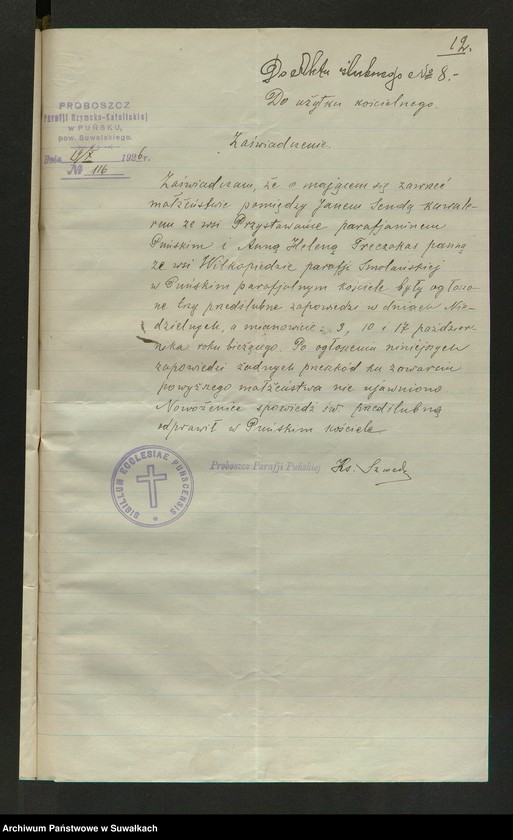 12.
Do Aktu ślubnego No 8.-
Do użytku kościelnego.
PROBOSZCZ
Parafji Rzymsko-Katolickiej
w PUŃSKU,
pow. Suwalskiego.
Dnia 19/X 1926 r.
№ 116
Zaświadczenie.
Zaświadczam, że o mającem się zawrzeć
małżeństwie pomiędzy Janem Sendą kawale-
rem ze wsi Przystawańce parafjaninem
Puńskim i Anną Heleną Treczokas panną
ze wsi Wilkopiedzie parafji Smolańskiej
w Puńskim parafjalnym kościele były ogłoszo-
ne trzy przedślubne zapowiedzi w dniach Nie-
dzielnych, a mianowicie: 3, 10 i 17 paździer-
nika roku bieżącego. Po ogłoszeniu niniejszych
zapowiedzi żadnych przeszkód ku zawarciu
powyższego małżeństwa nie ujawniono
Nowożeniec spowiedź św. przedślubną
odprawił w Puńskim kościele
Proboszcz Parafji Puńskiej Ks. Szwedy
SIGILLUM ECCLESIAE PUNSCENSIS
Archiwum Państwowe w Suwałkach